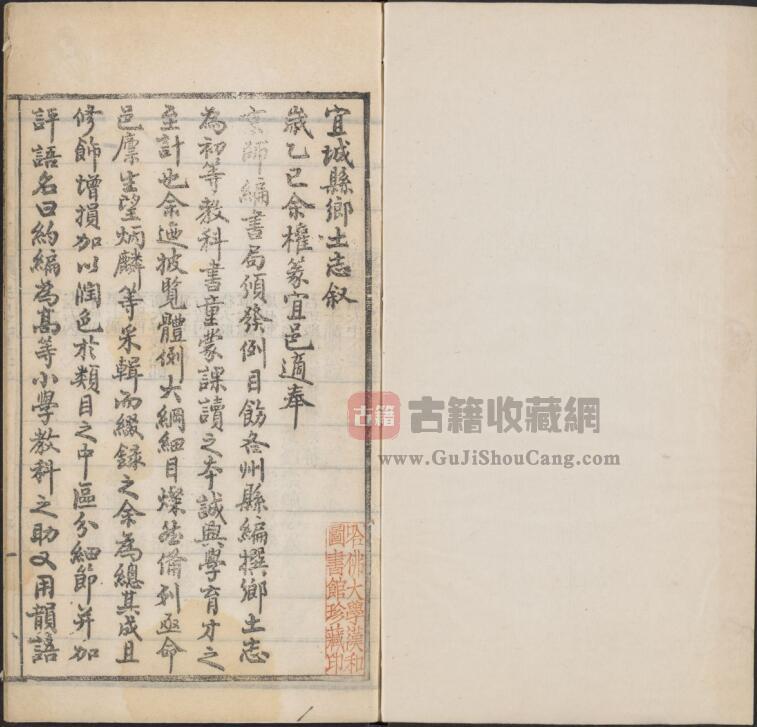 宜城縣鄉土志叙
歲乙巳余權篆宜邑適奉
京師編書局頒發例目飭各州縣編撰鄉土志
為初等教科書童蒙課讀之本誠興學育才之
至計也余迺披覽體例大綱細目燦然備列亟命
邑廩生望炳麟等采輯而綴錄之余為總其成且
修飾增損加以潤色於類目之中區分細節并加
評語名曰約編為高等小學教科之助又用韻語
哈佛大學漢和
圖書館珍藏印
古籍
古籍收藏網
www.GuJiShouCang.com